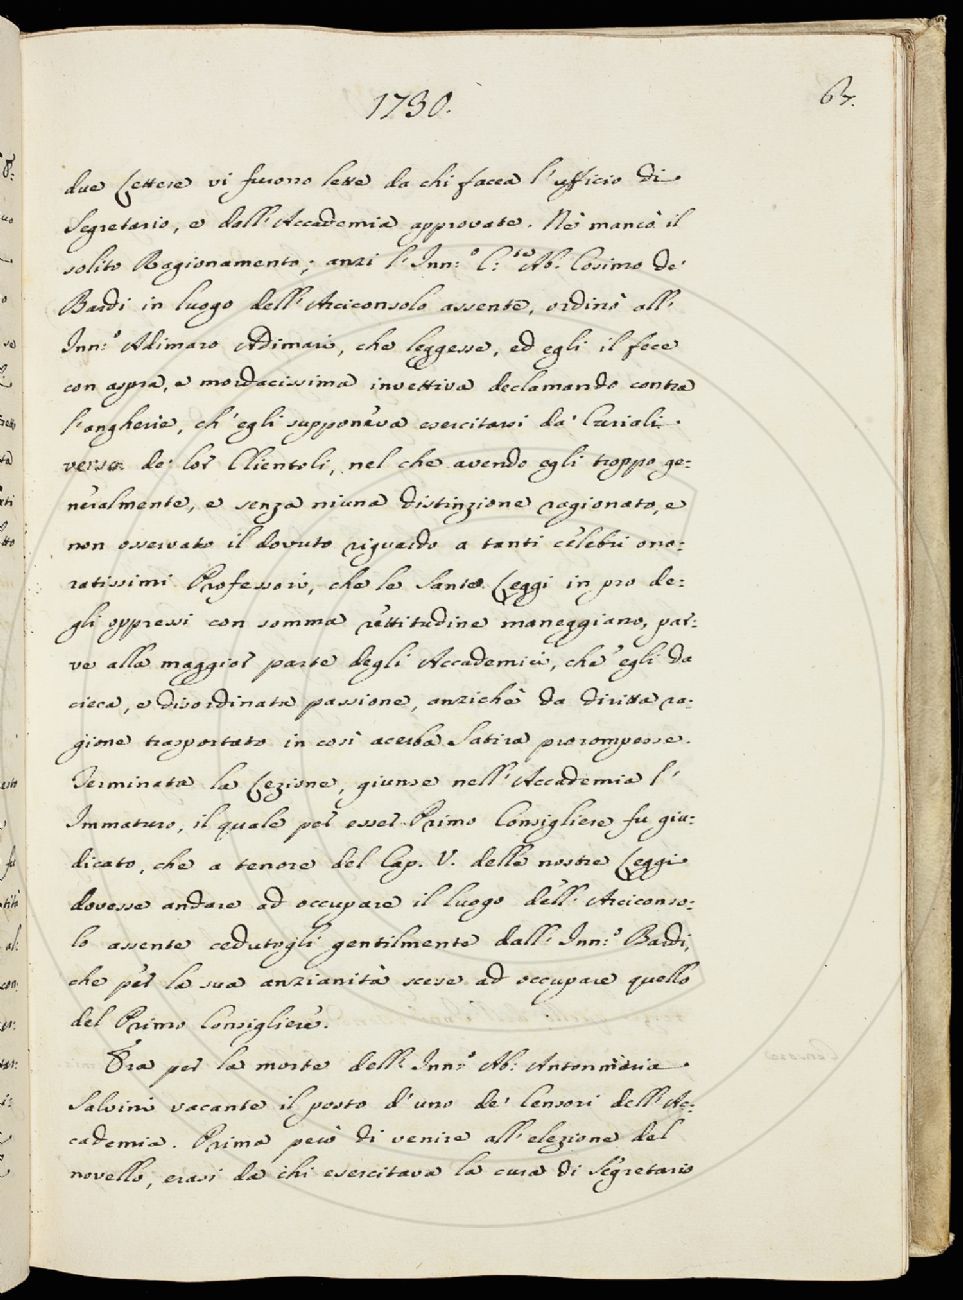 1730.
63.
due Lettere vi furono lette da chi facea l'ufficio di
Segretario, e dall'Accademia approvate. Nè mancò il
solito Ragionamento; anzi l'Inn:º C:te Ab. Cosimo de'
Bardi in luogo dell'Arciconsolo assente, ordinò all'
Inn:º Adimaro Adimari, che leggesse, ed egli il fece
con aspra, e mordacissima invettiva declamando contra
l'angherie, ch'egli supponeva esercitarsi da' Curiali
verso de' lor Clientoli, nel che avendo egli troppo ge=
neralmente, e senza niuna distinzione ragionato, e
non osservato il dovuto riguardo a tanti celebri ono=
ratissimi Professori, che le Sante Leggi in pro de=
gli oppressi con somma rettitudine maneggiano, par=
ve alla maggior parte degli Accademici, che egli da
cieca, e disordinata passione, anzichè da diritta ra=
gione trasportato in così acerba Satira prorompesse.
Terminata la Lezione, giunse nell'Accademia l'
Immaturo, il quale per esser Primo Consigliere fu giu=
dicato, che a tenore del Cap. V. delle nostre Leggi
dovesse andare ad occupare il luogo dell'Arciconso=
lo assente cedutogli gentilmente dall'Inn:º Bardi,
che per la sua anzianità scese ad occupare quello
del Primo Consigliere.
Era per la morte dell'Inn:º Ab: Antonmaria
Salvini vacante il posto d'uno de' Censori dell'Ac=
cademia. Prima però di venire all'elezione del
novello, erasi da chi esercitava la cura di Segretario